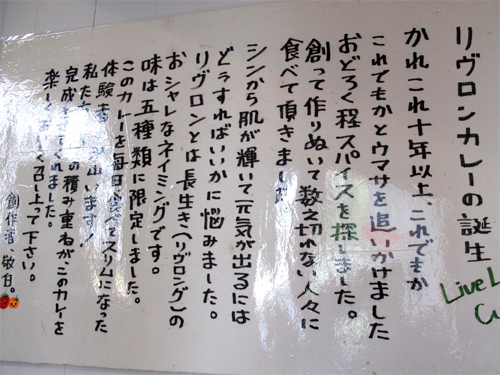 リヴロンカレーの誕生
Live L
Cu
かれこれ十年以上、これでもか
これでもかとウマサを追いかけました
おどろく程スパイスを探しました。
創って作りぬいて数え切れない人々に
食べて頂きました
シンから肌が輝いて元気が出るには
どうすればいいかに悩みました。
リヴロンとは長生き(リヴロング)の
おシャレなネイミングです。
味は五種類に限定しました。
このカレーを毎日食べてスリムになった
体験者
私た 思います!
の積み重ねが、このカレーを
完成 くれました。
楽し く召し上って下さい。
創作者、敬白。